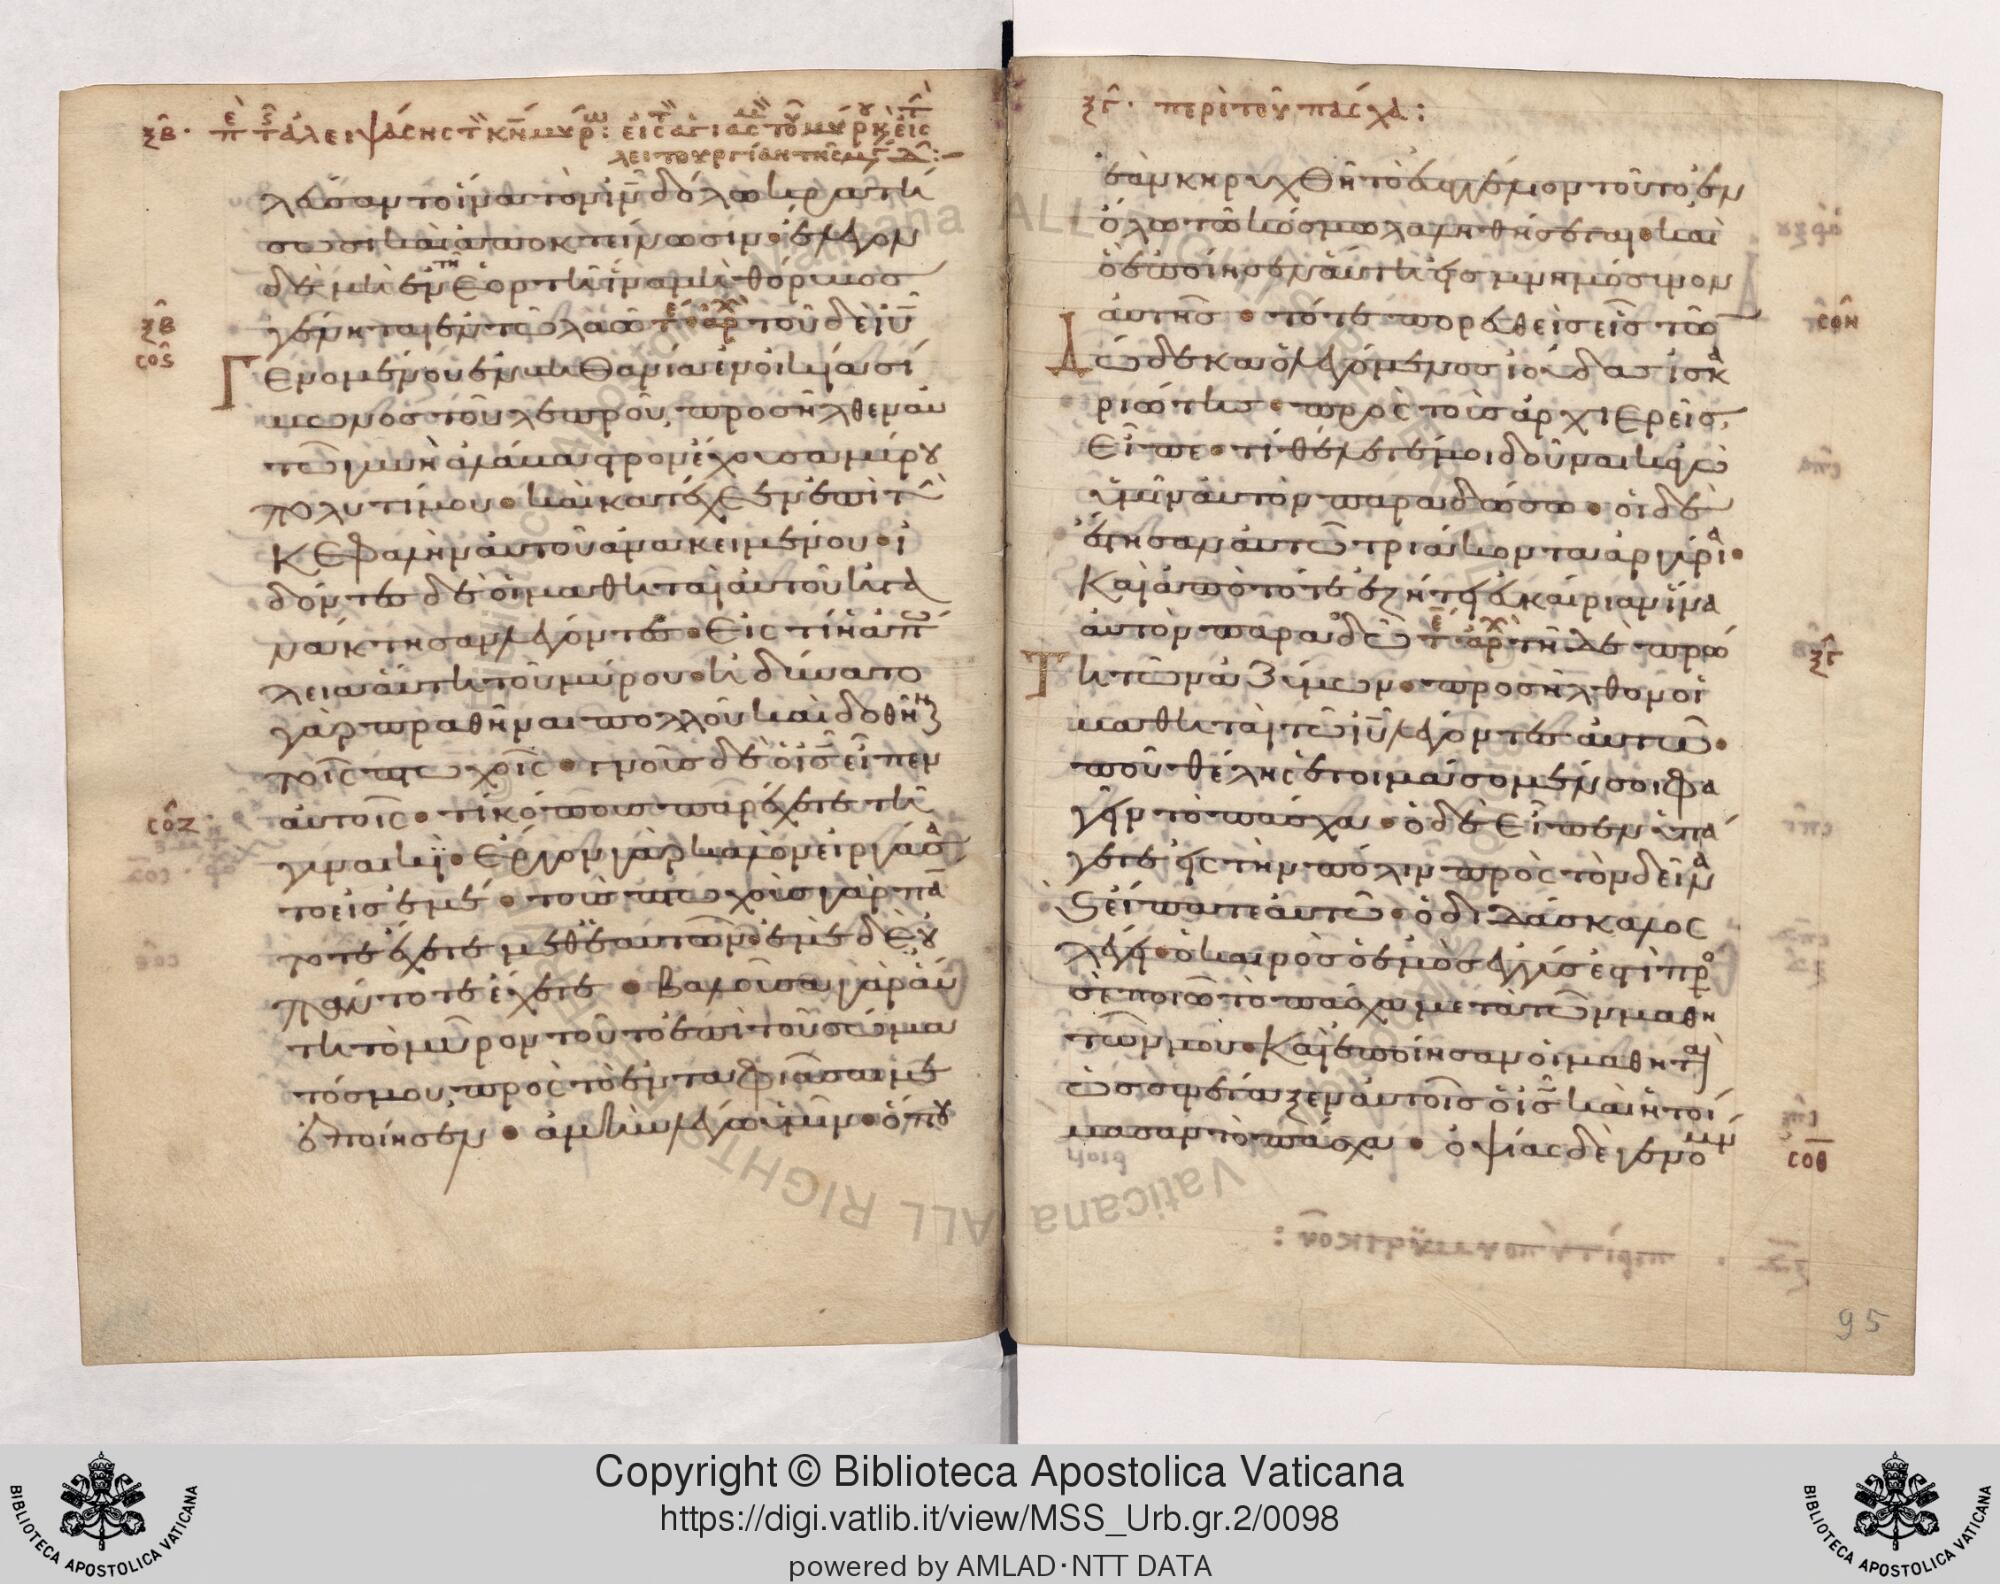 ξβ̂· π τ ἀλειψάσης τ κ̄ν μύρ: εἰς ἁγιασ τοῦ μύρ κ εἰς
λειτουργίαν τῆς μγ δ:-
λεύσαντο ἵνα τὸν ιν̅ δόλω κρατή
σωσι καὶ ἀποκτείνωσιν· ἔλεγον
δὲ μὴ ἐν τῆ ἑορτῆ ἵνα μὴ θόρυβος
γένηται ἐν τῶ λαῶ τοῦ δὲ ιυ̅
Γενομένου ἐν βηθανία ἐν οἰκία σί
μωνος τοῦ λεπροῦ, προσῆλθεν αὐ
τῶ γυνὴ ἀλάβαστρον ἔχουσα μύρου
πολυτίμου· καὶ κατέχεεν ἐπὶ τὴν
κεφαλὴν αὐτοῦ ἀνακειμένου· ἰ
δόντες δὲ οἱ μαθηταὶ αὐτοῦ ἠγα
νάκτησαν λέγοντες· εἰς τί ἡ ἀπώ
λεια αὕτη τοῦ μύρου· ἠδύνατο
γὰρ πραθῆναι πολλοῦ καὶ δοθῆναι
τοῖς πτωχοῖς· γνοὺς δὲ ὁ ις̅ εἶπεν
αὐτοῖς· τί κόπους παρέχετε τῆ
γυναικί· ἔργον γὰρ καλὸν εἰργάσα
το εἰς ἐμέ· τοὺς πτωχοὺς γὰρ πάν
τοτε ἔχετε μεθ' ἑαυτῶν· ἐμὲ δὲ οὐ
πάντοτε ἔχετε· βαλοῦσα γὰρ αὕ
τη τὸ μύρον τοῦτο ἐπὶ τοῦ σώμα
τός μου, πρὸς τὸ ἐνταφιάσαι με
ἐποίησεν· ἀμὴν λέγω ὑμῖν· ὅπου
ξβ
σος
σοζ
ξγ· περὶ τοῦ πάσχα:
ἐὰν κηρυχθῆ τὸ εὐαγγέλιον τοῦτο ἐν
ὅλω τῶ κόσμω λαληθήσεται· καὶ
ὃ ἐποίησεν αὕτη εἰς μνημόσυνον
αὐτῆς· τότε πορευθεὶς εἷς τῶν
Δώδεκα ὁ λεγόμενος ἰούδας ἰσκα
ριώτης· πρὸς τοὺς ἀρχιερεῖς,
εἶπε· τί θέλετέ μοι δοῦναι κἀγὼ
ὑμῖν αὐτὸν παραδώσω· οἱ δὲ
ἔστησαν αὐτῶ τριάκοντα ἀργύρια·
καὶ ἀπὸ τότε ἐζήτει εὐκαιρίαν ἵνα
αὐτὸν παραδῶ τῆ δὲ πρώ
Τη τῶν ἀζύμων· προσῆλθον οἱ
μαθηταὶ τῶ ιυ̅ λέγοντες αὐτῶ·
ποῦ θέλης ἑτοιμάσομέν σοι φα
γεῖν τὸ πάσχα· ὁ δὲ εἶπεν ὑπά
γετε εἰς τὴν πόλιν πρὸς τὸν δεῖνα
καὶ εἴπατε αὐτῶ· ὁ διδάσκαλος
λέγει· ὁ καιρὸς ὁ ἐμὸς ἐγγύς ἐστι πρὸς
σὲ ποιῶ τὸ πάσχα μετὰ τῶν μαθη
τῶν μου· καὶ ἐποίησαν οἱ μαθηταὶ
ὡς συνέταξεν αὐτοῖς ὁ ις̅ καὶ ἡτοί
μασαν τὸ πάσχα· ὀψίας δὲ γενομέν
σοη
ξγ
σοθ
95
Copyright © Biblioteca Apostolica Vaticana
https://digi.vatlib.it/view/MSS_Urb.gr.2/0098
powered by AMLAD·NTT DATA
BIBLIOTECA APOSTOLICA VATICANA
BIBLIOTECA APOSTOLICA VATICANA